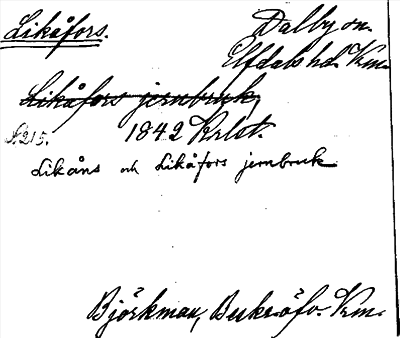 Likåfors.
Dalby sn.
Elfdals hd. Vrm.
Likåfors jernbruk,
S. 215.
1842 Krlst.
Likåns och Likåfors jernbruk
Björkman, Beskr. öfv. Vrm.